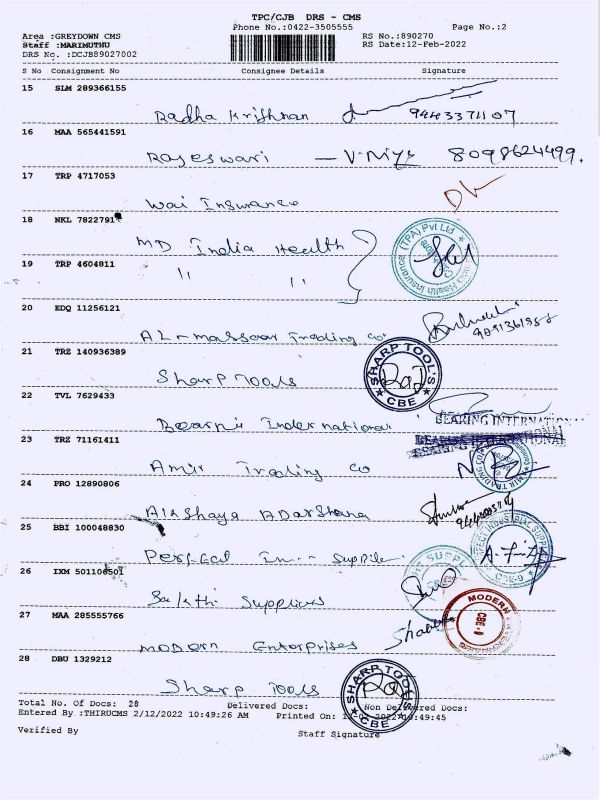 TPC/CJB DRS - CMS
Phone No.:0422-3505555 Page No.:2
Area :GREYDOWN CMS RS No.:890270
Staff :MARIMUTHU RS Date:12-Feb-2022
DRS No. :DCJB89027002
S No Consignment No Consignee Details Signature
15 SLM 289366155
Radha Krishnan 9443371107
16 MAA 565441591
Rajeswari 8098624499.
17 TRP 4717053
Wai Insurance
18 NKL 7822791
MD India Health
19 TRP 4604811
" "
20 EDQ 11256121
Trading co
21 TRZ 140936389
Sharp Tools
SHARP TOOL'S CBE
22 TVL 7629433
International
BEARING INTERNATIONAL
BEARING INTERNATIONAL
23 TRZ 71161411
Amir Trading co
24 PRO 12890806
Akshaya ADarshana
25 BBI 100048830
Perfect
26 IXM 501106501
Sakthi Suppliers
27 MAA 285555766
MODERN CBE
Modern Enterprises
28 DBU 1329212
Sharp Tools
SHARP TOOL'S CBE
Total No. Of Docs: 28 Delivered Docs: Non Delivered Docs:
Entered By :THIRUCMS 2/12/2022 10:49:26 AM Printed On: 12-02-2022 10:49:45
Verified By Staff Signature